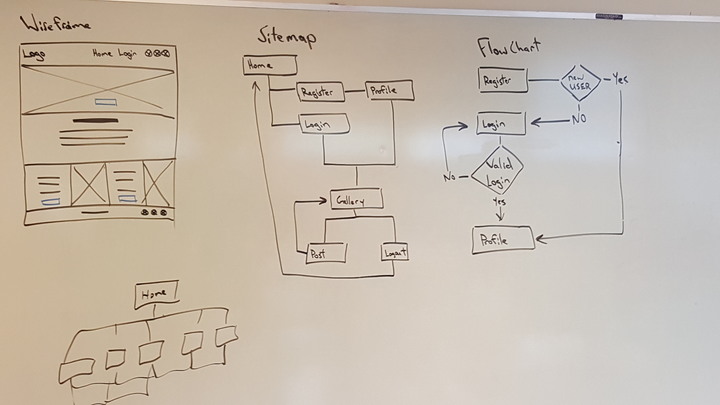 Wireframe
Logo
Home Login
Sitemap
Home
Register
Profile
Login
Gallery
Post
Logout
FlowChart
Register
new
USER
Yes
NO
Login
Valid
Login
No
Yes
Profile
Home